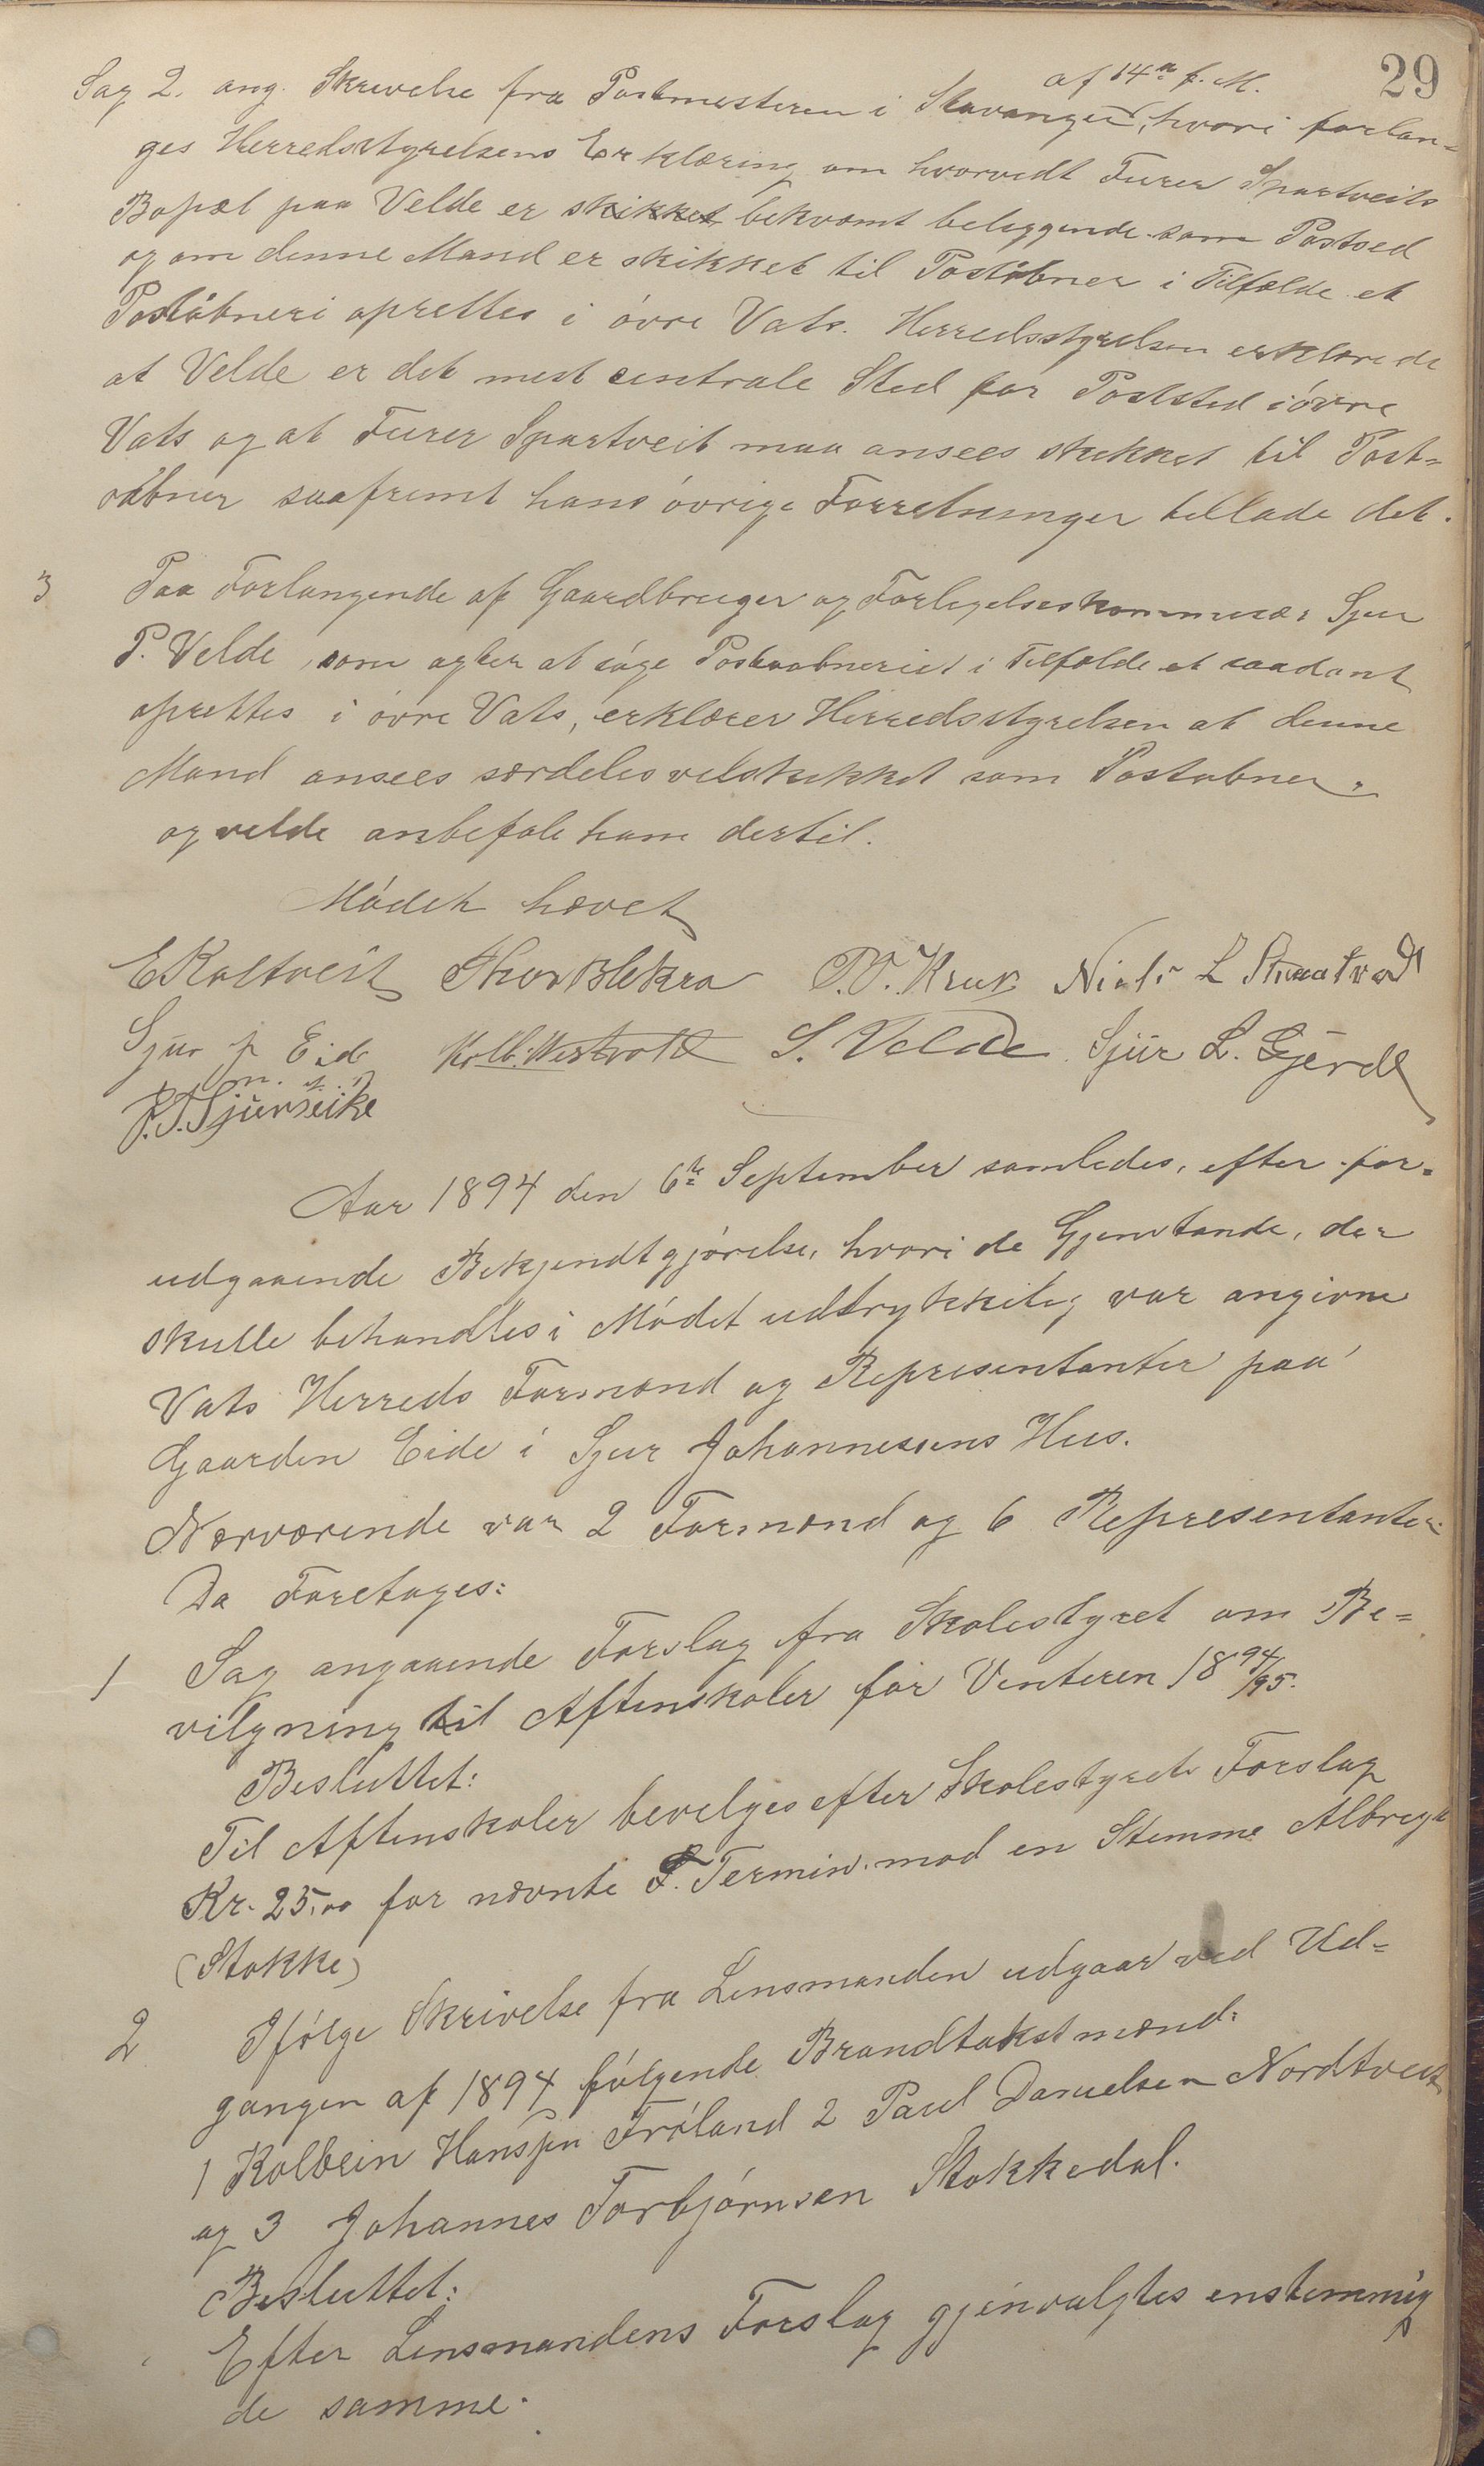 29
af 14de f. M.
Sag 2. ang. Skrivelse fra Postmesteren i Stavanger, hvori forlan-
ges Herredsstyrelsens Erklæring om hvorvidt Furer Spartveits
Bopæl paa Velde er skikket bekvæmt beliggende som Poststed
og om denne Mand er skikket til Poståbner i Tilfælde et
Poståbneri oprettes i óvre Vats. Herredsstyrelsen erklærede
at Velde er det mest centrale Sted for Poststed i óvre
Vats og at Furer Spartveit maa ansees skikket til Post-
åbner saafremt hans óvrige Forretninger tillade det.
3 Paa Forlangende af Gaardbruger og Forligelseskommissær Sjur
P. Velde, som agter at sóge Postaabneriet i Tilfælde et saadant
oprettes i óvre Vats, erklærer Herredsstyrelsen at denne
Mand ansees særdeles velskikket som Postabner
og vilde anbefale ham dertil.
Módet hævet
E Kaltveit Thor Blikra P. O. Krus Niels L
Sjur J Eide Kolb. Westvold S. Velde Sjur L. Gjerde
m. f. P.
P. T. Sjurseike
Aar 1894 den 6te September samledes, efter for-
udgaaende Bekjendtgjórelse, hvori de Gjenstande, der
skulle behandles i Módet udtrykkelig var angivne
Vats Herreds Formænd og Representanter paa
Gaarden Eide i Sjur Johannessens Hus.
Nærværende var 2 Formænd og 6 Representanter.
Da Foretages:
1 Sag angaaende Forslag fra Skolestyret om Be-
vilgning til Aftenskoler for Vinteren 1894/95.
Besluttet:
Til Aftenskoler bevilges efter Skolestyrets Forslag
Kr. 25,00 for nævnte T. Termin. mod en Stemme Albregt
(Stokke)
2 Ifólge Skrivelse fra Lensmanden udgaar ved Ud-
gangen af 1894 fólgende Brandtakstmænd:
1 Kolbein Hansen Fróland 2 Paul Danielsen Nordtveit
og 3 Johannes Torbjórnsen Stokkedal.
Besluttet:
Efter Lensmandens Forslag gjenvalgtes enstemmig
de samme.